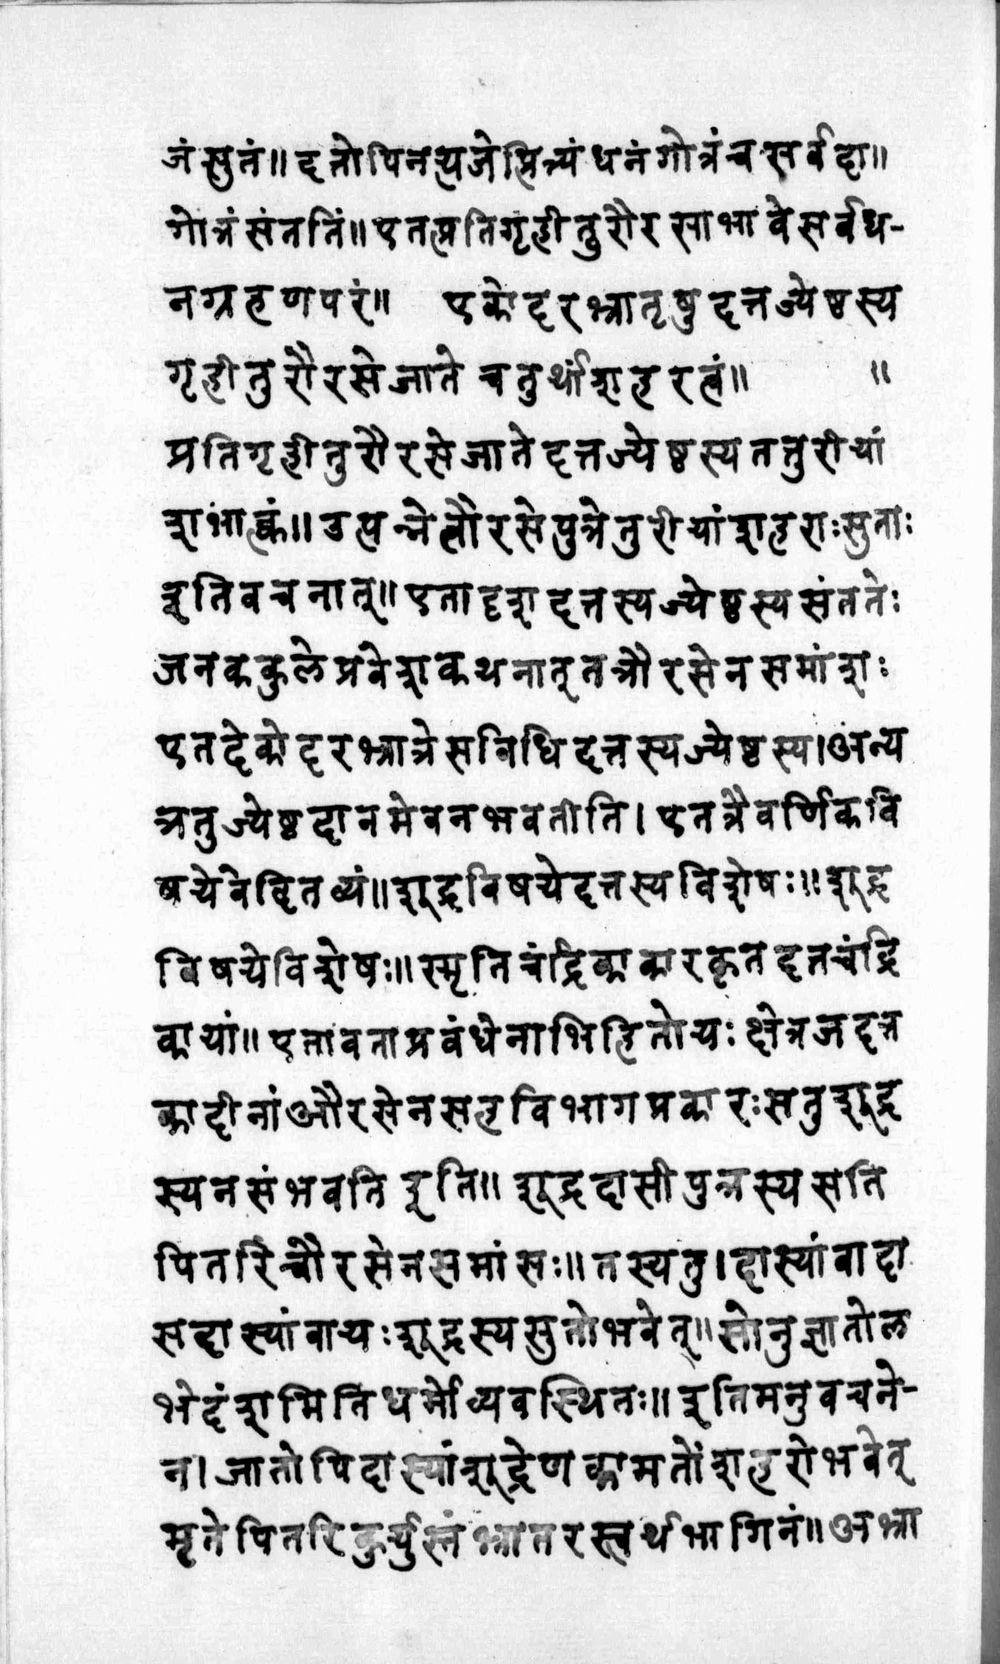 जं सुतं॥ दत्तोपिनत्यजेत्पित्र्यं धनं गोत्रं च सर्वदा॥
गोत्रं संततिं॥ एतत्प्रतिगृहीतुरौरसाभावे सर्वध-
नग्रहणपरं॥ एकोदरभ्रातृषु दत्तज्येष्ठस्य
गृहीतुरौरसे जाते चतुर्थांशहरत्वं॥ ॥
प्रतिगृहीतुरौरसे जाते दत्तज्येष्ठस्य तत्तुरीयां
शभाक्त्वं॥ उत्पन्ने त्वौरसे पुत्रे तुरीयांशहराः सुताः
इतिवचनात्॥ एतादृशदत्तस्यज्येष्ठस्य संततेः
जनककुलेप्रवेशकथनात् तत्रौरसेन समांशः
एतदेकोदरभ्रात्रे सविधिदत्तस्यज्येष्ठस्य। अन्य
त्रतुज्येष्ठदानमेवनभवतीति। एतत्रैवर्णिकवि
षयेवेदितव्यं॥ शूद्रविषयेदत्तस्यविशेषः॥ शूद्र
विषयेविशेषः॥ स्मृतिचंद्रिकाकारकृतदत्तचंद्रि
कायां॥ एतावताप्रबंधेनाभिहितोयः क्षेत्रजदत्त
कादीनांऔरसेनसहविभागप्रकारः सतुशूद्र
स्यनसंभवतिइति॥ शूद्रदासीपुत्रस्य सति
पितरिचौरसेनसमांसः॥ तस्यतु। दास्यांवादा
सदास्यांवायः शूद्रस्यसुतोभवेत्॥ सोनुज्ञातोल
भेदंशमितिधर्मोव्यवस्थितः॥ इतिमनुवचने-
न। जातोपिदास्यांशूद्रेणकामतोंशहरोभवेत्
मृतेपितरिकुर्युस्तंभ्रातरस्त्वर्धभागिनं॥ अभ्रा